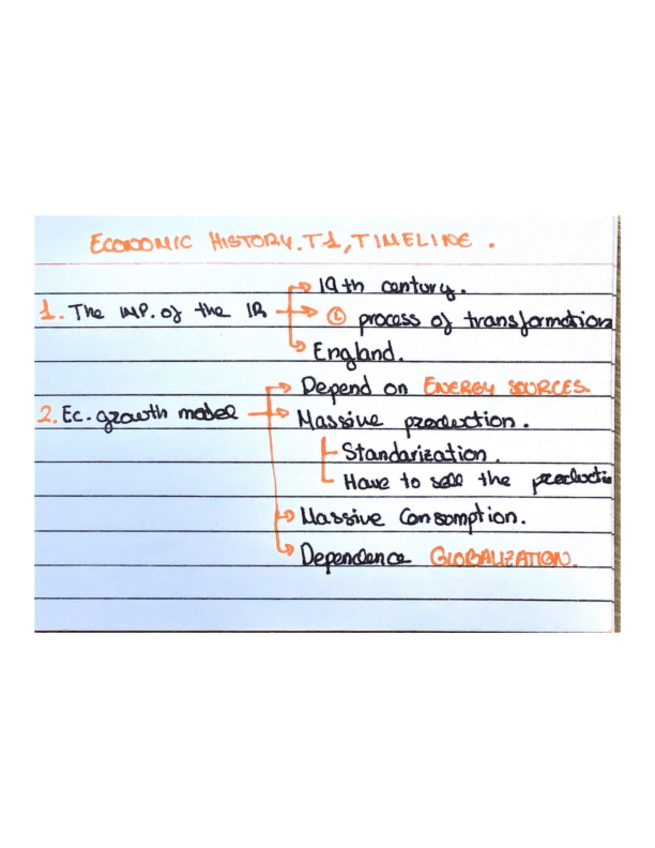 ECONOMIC HISTORY. T1, TIMELINE.
19th century.
1. The IMP. of the IR
L process of transformation
England.
Depend on ENERGY SOURCES.
2. Ec. growth model
Massive production.
Standarization.
Have to sell the productio
Massive Consomption.
Dependence GLOBALIZATION.